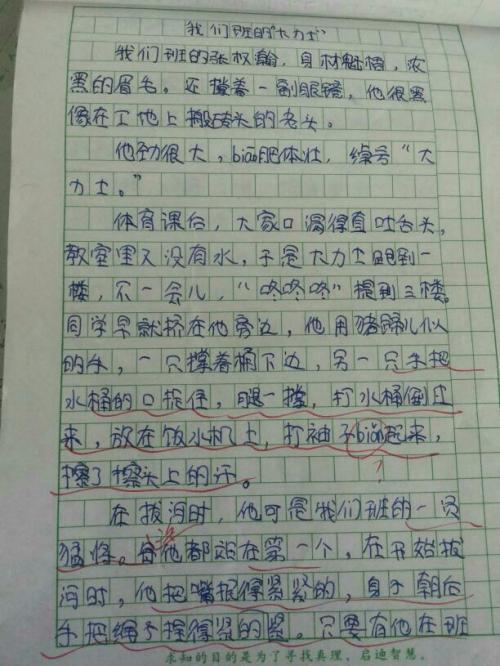 我们班的"大力士"
我们班的张权瀚，身材魁梧，浓
黑的眉毛。还撑着一副眼镜，他很黑
像在工地上搬砖头的老头。
他劲很大，biāo肥体壮，绰号"大
力士。"
体育课后，大家口渴得直吐舌头，
教室里又没有水，于是大力士跑到一
楼，不一会儿，"咚咚咚"提到三楼。
同学早就挤在他旁边，他用猪蹄儿似
的手，一只撑着桶下边，另一只手把
水桶的口捉住，腿一撑，打水桶倒过
来，放在饮水机上，打袖子biān起来，
擦了擦头上的汗。
在拔河时，他可是我们班的一员
猛将。他都站在第一个，在开始拔
河时，他把嘴抿得紧紧的，身子朝后
手把绳子握得紧的紧。只要有他在班
求知的目的是为了寻找真理，启迪智慧。